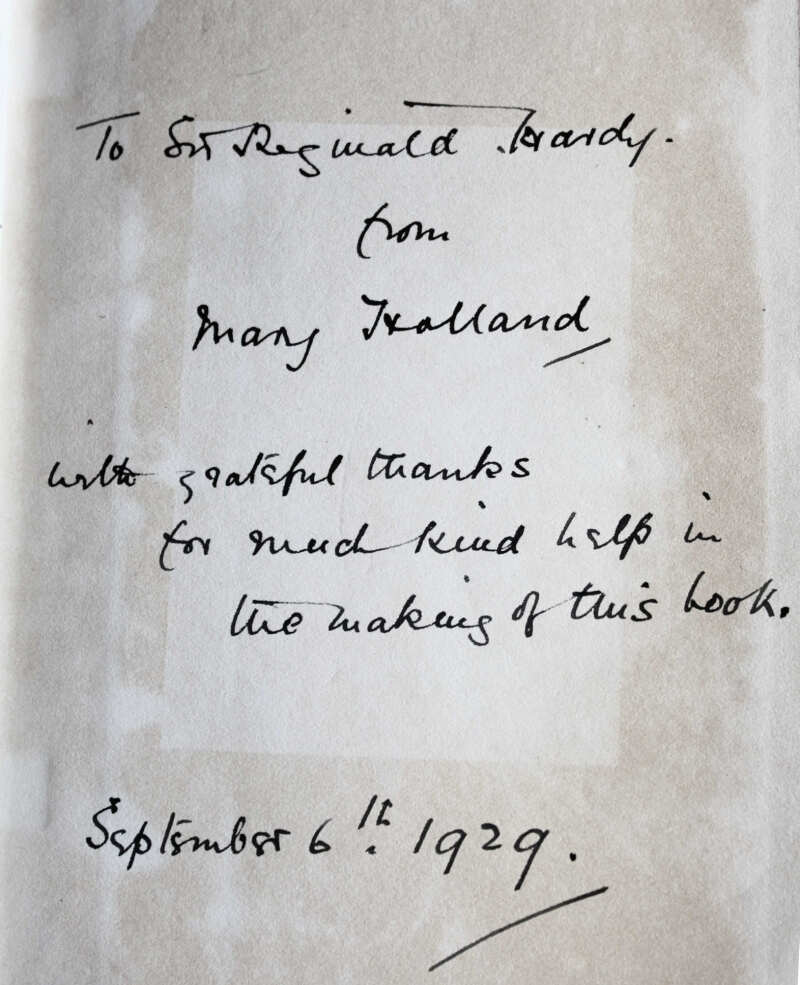 To Sir Reginald Hardy.
from
Mary Holland
with grateful thanks
for much kind help in
the making of this book.
September 6th. 1929.